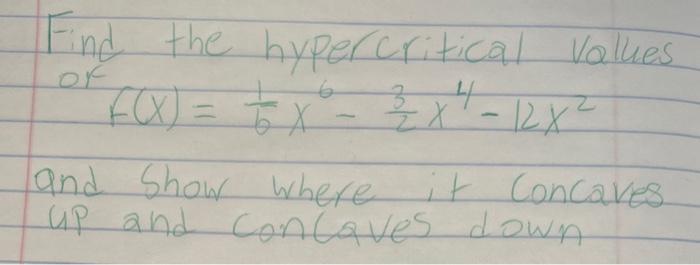 Find the hypercritical values
of
f(x) = 1/6 x^6 - 3/2 x^4 - 12x^2
and show where it concaves
up and concaves down